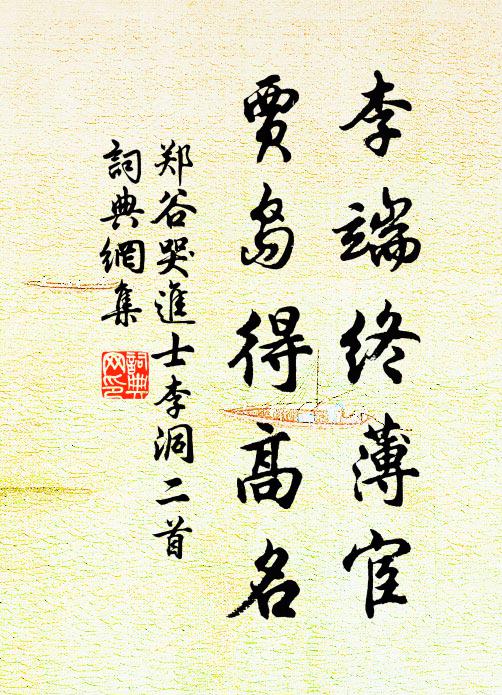 李端终薄宦
贾岛得高名
郑谷哭進士李洞二首
詞典網集
詞典网印